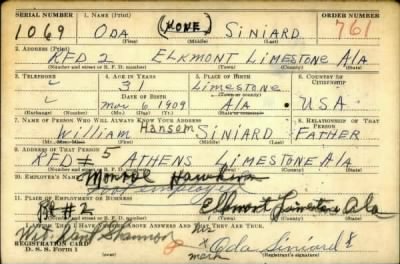 SERIAL NUMBER 1. NAME (Print) ORDER NUMBER
1069 ODA (NONE) SINIARD 761
(First) (Middle) (Last)
2. ADDRESS (Print)
RFD 2 ELKMONT LIMESTONE Ala
(Number and street or R. F. D. number) (Town) (County) (State)
3. TELEPHONE 4. AGE IN YEARS 5. PLACE OF BIRTH 6. COUNTRY OF CITIZENSHIP
31 LIMESTONE
DATE OF BIRTH (Town or county)
Nov 6 1909 Ala USA
(Exchange) (Number) (Mo.) (Day) (Yr.) (State or country)
7. NAME OF PERSON WHO WILL ALWAYS KNOW YOUR ADDRESS 8. RELATIONSHIP OF THAT PERSON
William Hansom SINIARD FATHER
(First) (Middle) (Last)
9. ADDRESS OF THAT PERSON
RFD #5 ATHENS LIMESTONE Ala
(Number and street or R. F. D. number) (Town) (County) (State)
10. EMPLOYER'S NAME
Monroe
11. PLACE OF EMPLOYMENT OR BUSINESS
Rt # 2 Elkmont Limestone Ala
(Number and street or R. F. D. number) (Town) (County) (State)
I AFFIRM THAT I HAVE VERIFIED ABOVE ANSWERS AND THAT THEY ARE TRUE.
Wit. Shannon his
REGISTRATION CARD x Oda Siniard
D. S. S. Form 1 mark (Registrant's signature)